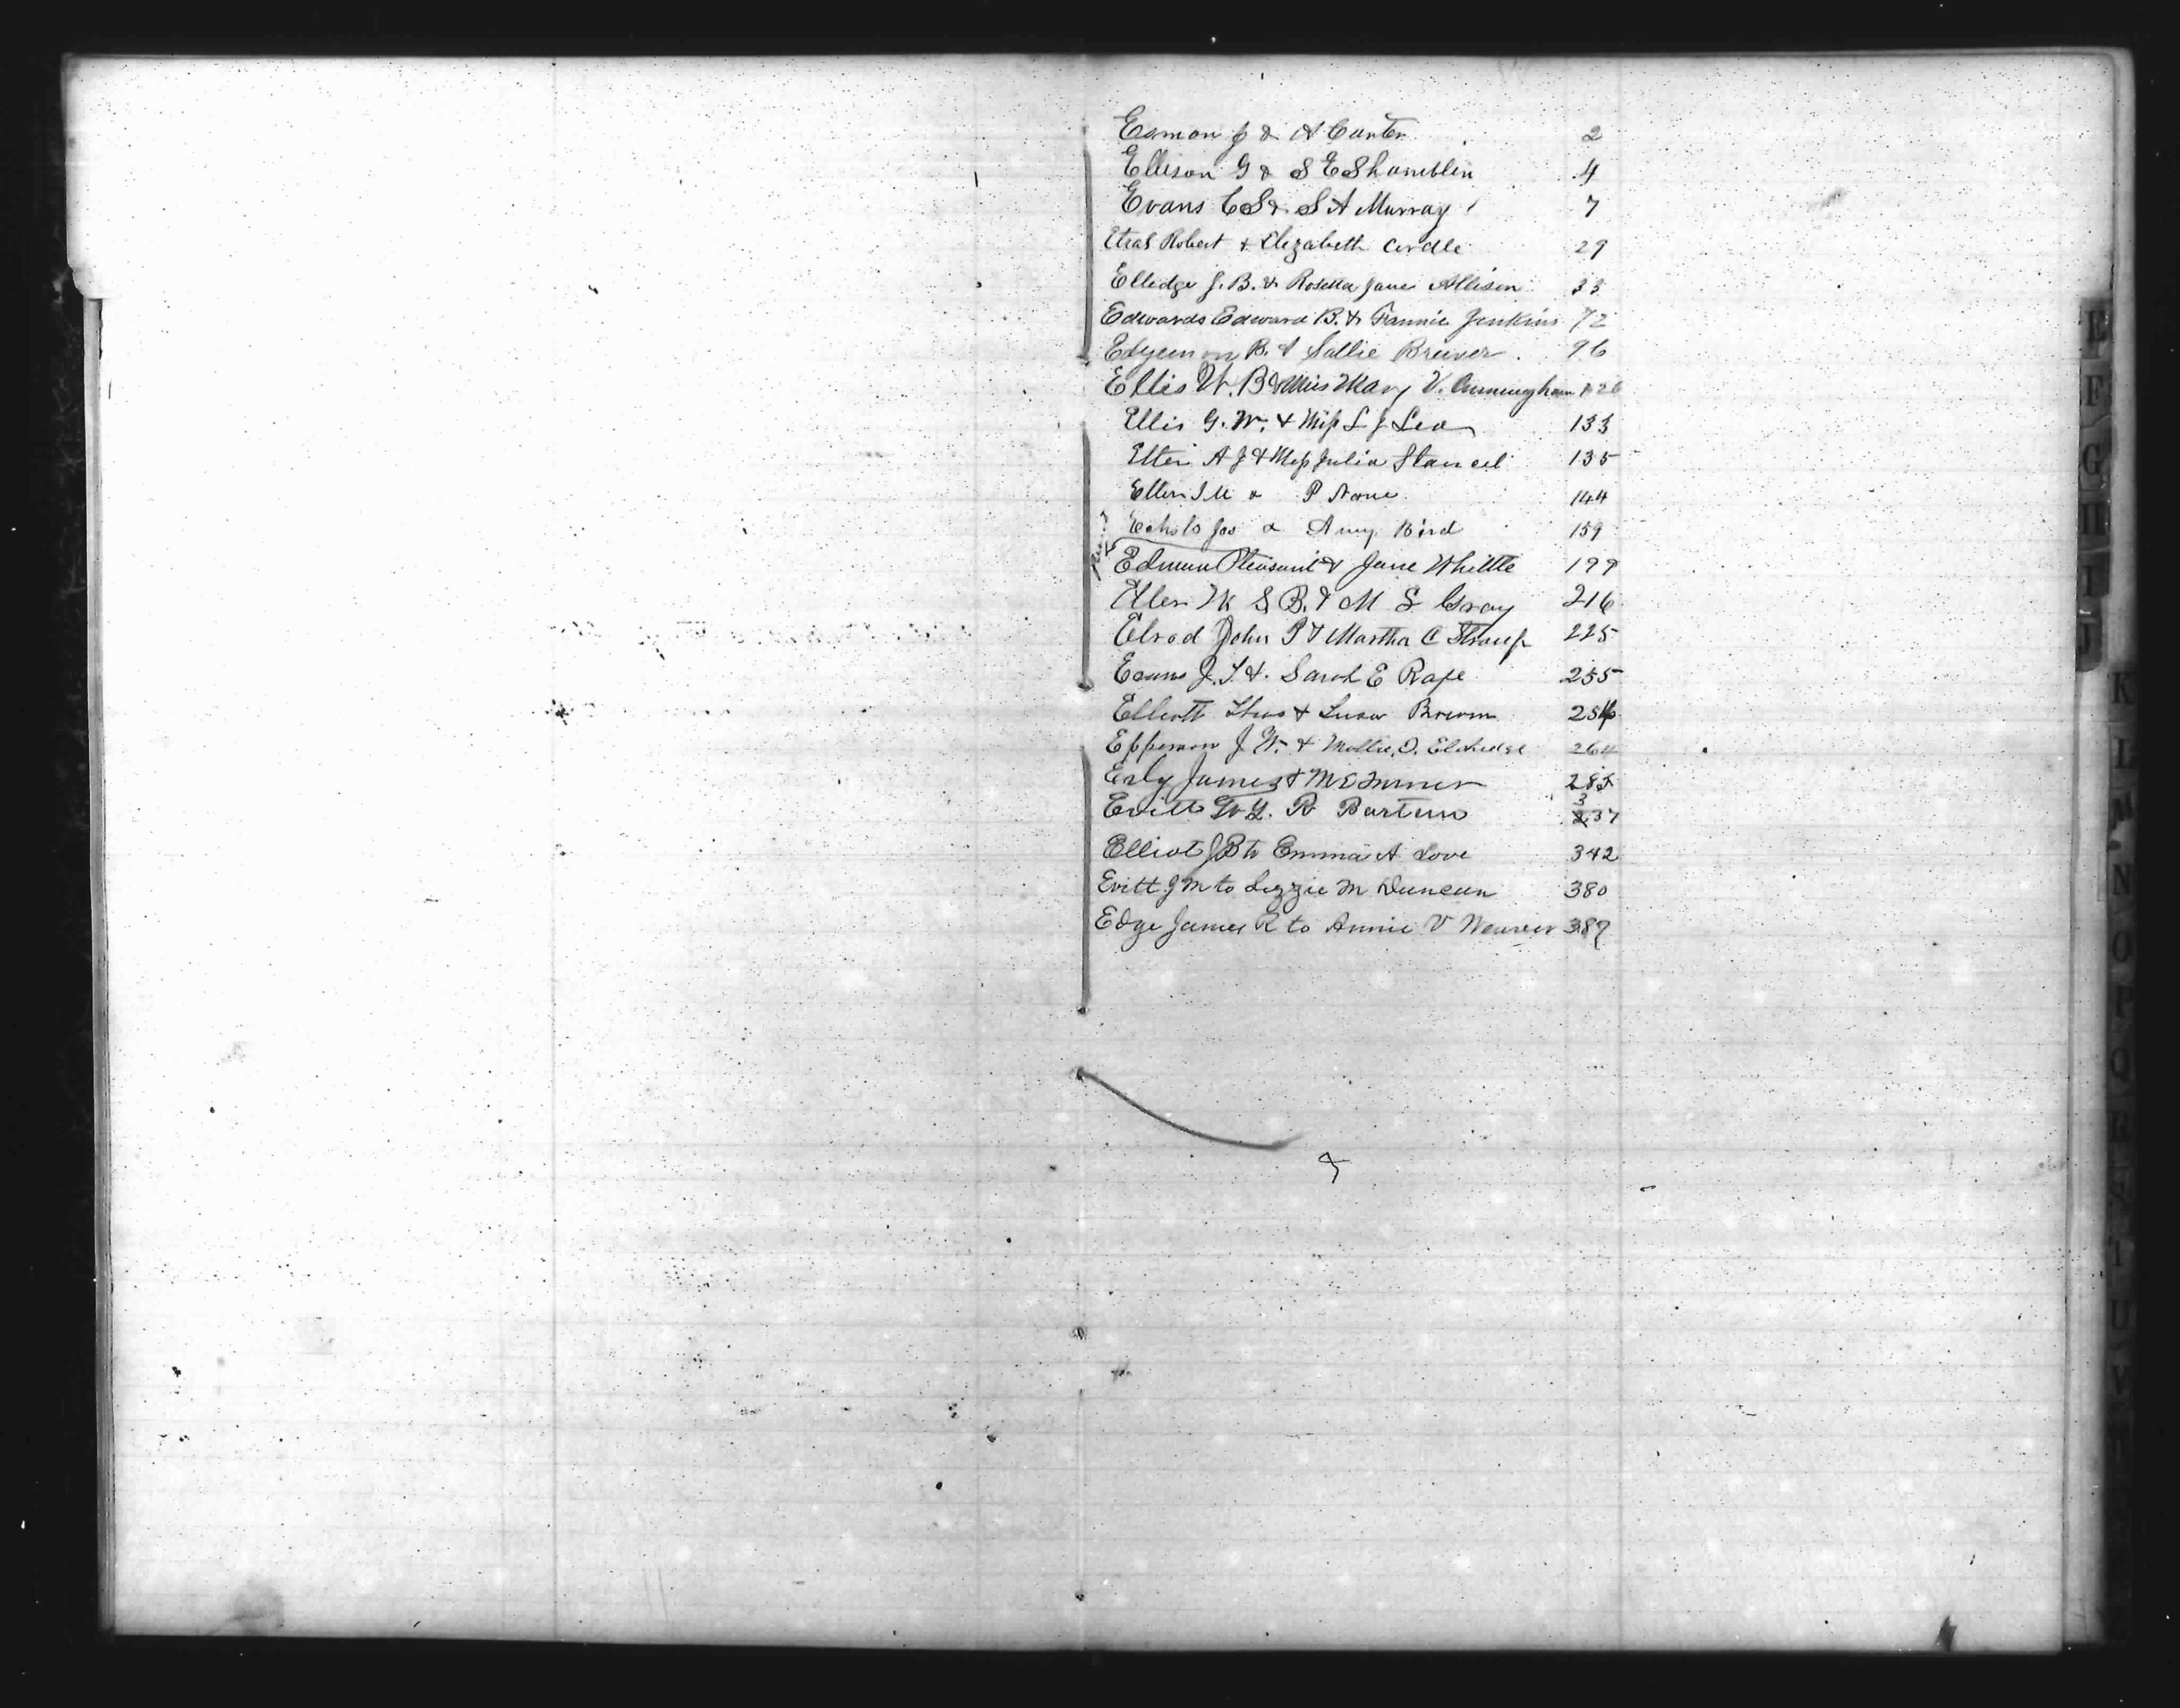 Esmon J & A Carter 2
Ellison G & S E Shamblin 4
Evans C S & S A Murray 7
Robert & Elizabeth Cordle 29
Elledge J. B. & Rosella Jane Allison 33
Edwards Edward B. & Fannie Jenkins 72
B. & Sallie Brewer 96
Ellis W. B & Miss Mary V. Cunningham 126
Ellis G. W. & Miss L J Lea 133
A J & Miss Julia Stancil 135
144
Echols Jas & Amy Bird 159
Pleasant & Jane Whittle 199
S. B. & M S Gray 216
Elrod John P & Martha C Stroup 225
J. T. &. Sarah E Rape 255
Elliott Thos & Brown 256
Epperson J W. & Mollie O. 264
Erly James & M E 285
Evitt R Barton 337
Elliot J B to Emma A Love 342
Evitt J M to Lizzie M Duncan 380
Edge James R to Annie V Weaver 389
E
F
G
H
I
J
K
L
M
N
O
P
Q
R
S
T
U
V